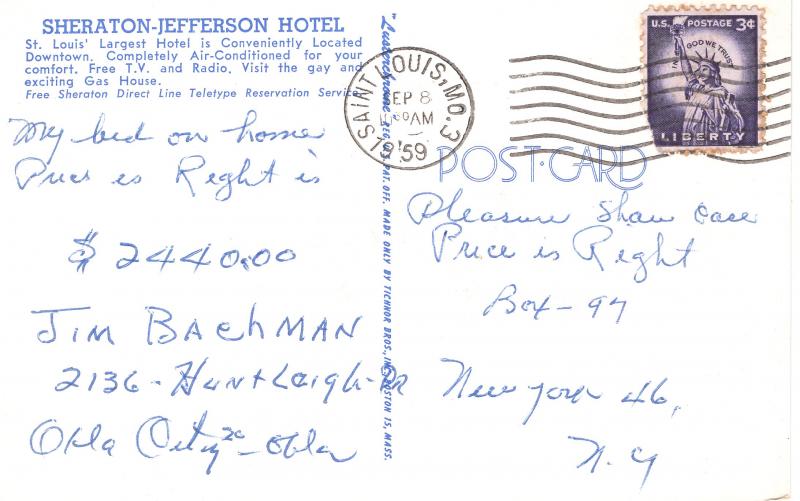 SHERATON-JEFFERSON HOTEL
St. Louis' Largest Hotel is Conveniently Located
Downtown. Completely Air-Conditioned for your
comfort. Free T.V. and Radio. Visit the gay and
exciting Gas House.
Free Sheraton Direct Line Teletype Reservation Service
My bid on home
Price is Right is
$ 2440.00
JIM BACHMAN
2136 - Huntleigh - DR
Okla City 20 - Okla
"Lusterchrome" REG. U.S. PAT. OFF. MADE ONLY BY TICHNOR BROS., INC., BOSTON 15, MASS.
SAINT LOUIS, MO. 3
SEP 8
AM
1959
U.S. POSTAGE 3¢
IN GOD WE TRUST
LIBERTY
POST-CARD
Pleasure Show Case
Price is Right
Box - 97
New York 46,
N. Y